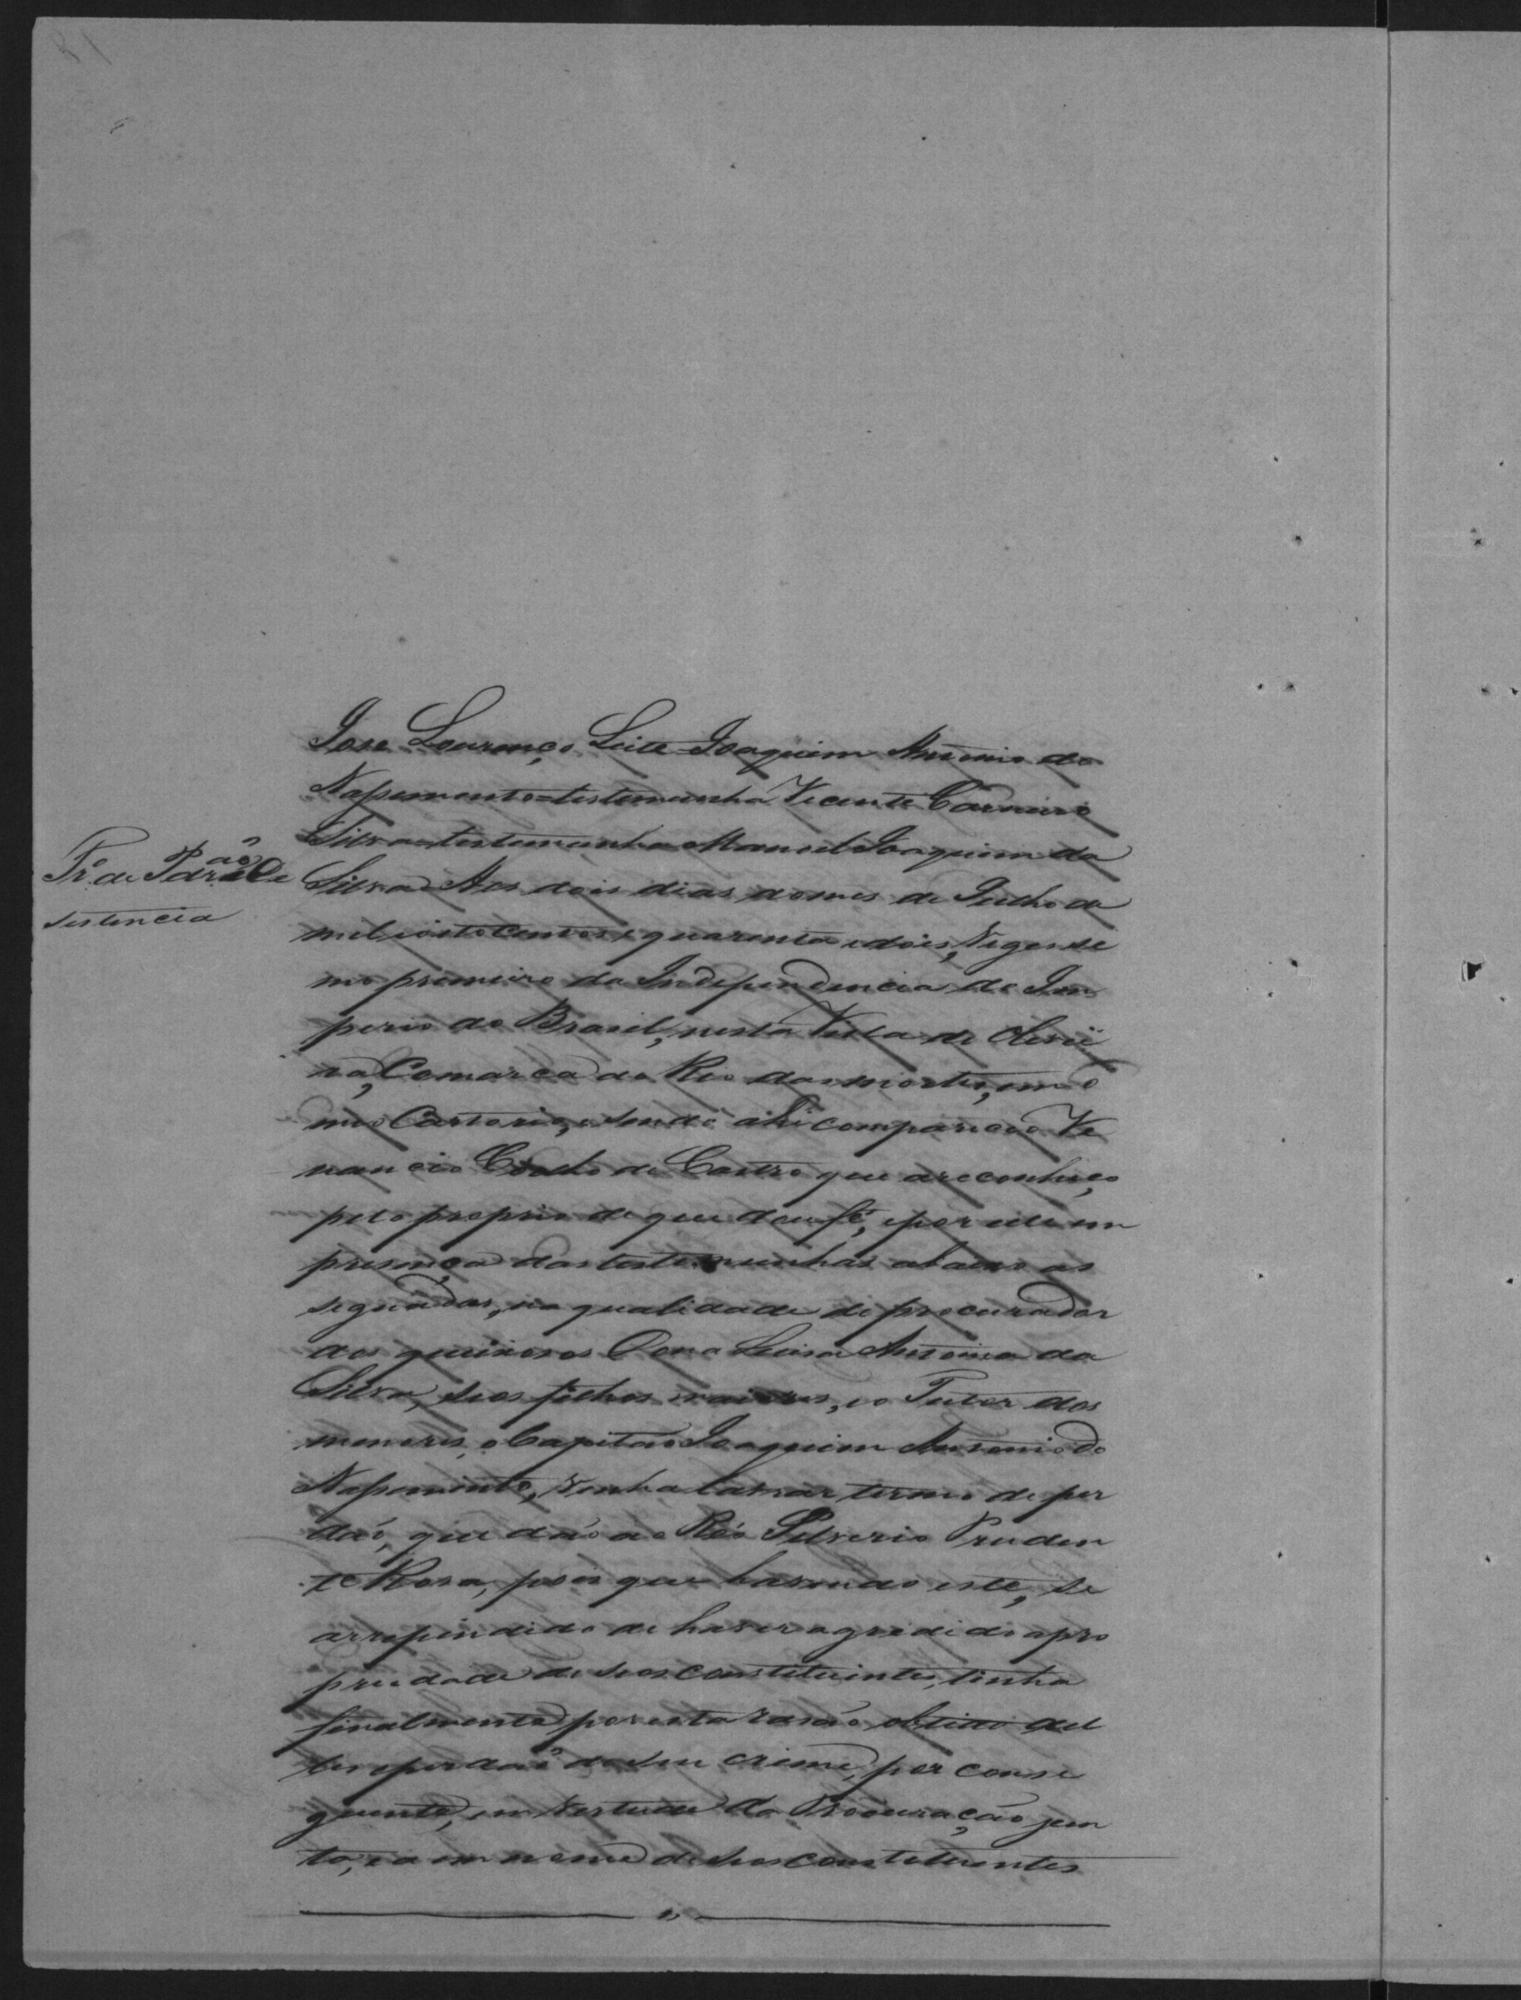 Jose Lourenço Leite Joaquim Antonio do
Nassemento = testemunha Vicente Carneiro
Silva = testemunha Manoel Joaquim da
Silva = Aos dois dias domes de Julho de
mil eoitocentos e quarenta edois, Vigesi
mo primeiro da Independencia do Im
perio do Brasil, nesta Villa de Olivei
ra, Comarca do Rio dasmortes, em o
meo Cartorio, esendo ahi compareceo Ve
nancio Coelho de Castro que o reconheço
pelo proprio de que dou fé, epor elle em
presença dastestemunhas abaixo as
segnadas, na qualidade de procurador
dos queixosos Dona Luisa Antonia da
Silva, seos filhos maiores, eo Tutor dos
menores, o Capitaõ Joaquim Antonio do
Nassemento, vinha lavrar termo de per
daõ, que daõ ao Réo Silverio Pruden
te Rosa, pois que havendo este, se
arrependido de haver agredido apro
priedade de seos constituintes, tinha
finalmente por esta rasaõ obtido del
les operdaõ do seu crime, por conse
guinte, em vertude da Procuração jun
ta, ea em nome de seos constituintes
Tr.º de
sistencia